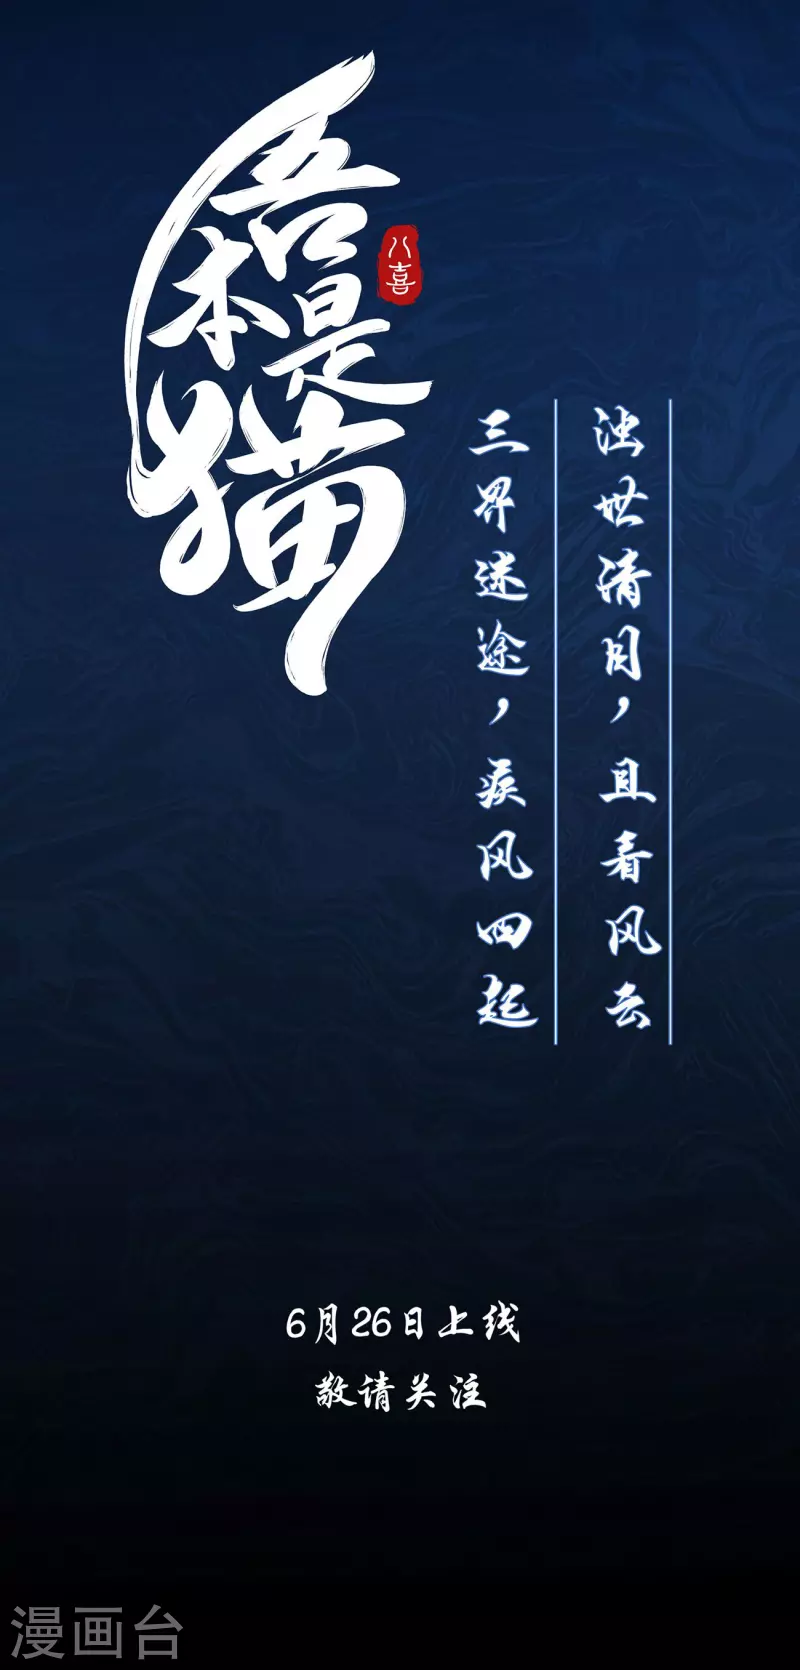 吾本是猫
八喜
浊世清月，且看风云
三界迷途，疾风四起
6月26日上线
敬请关注
漫画台